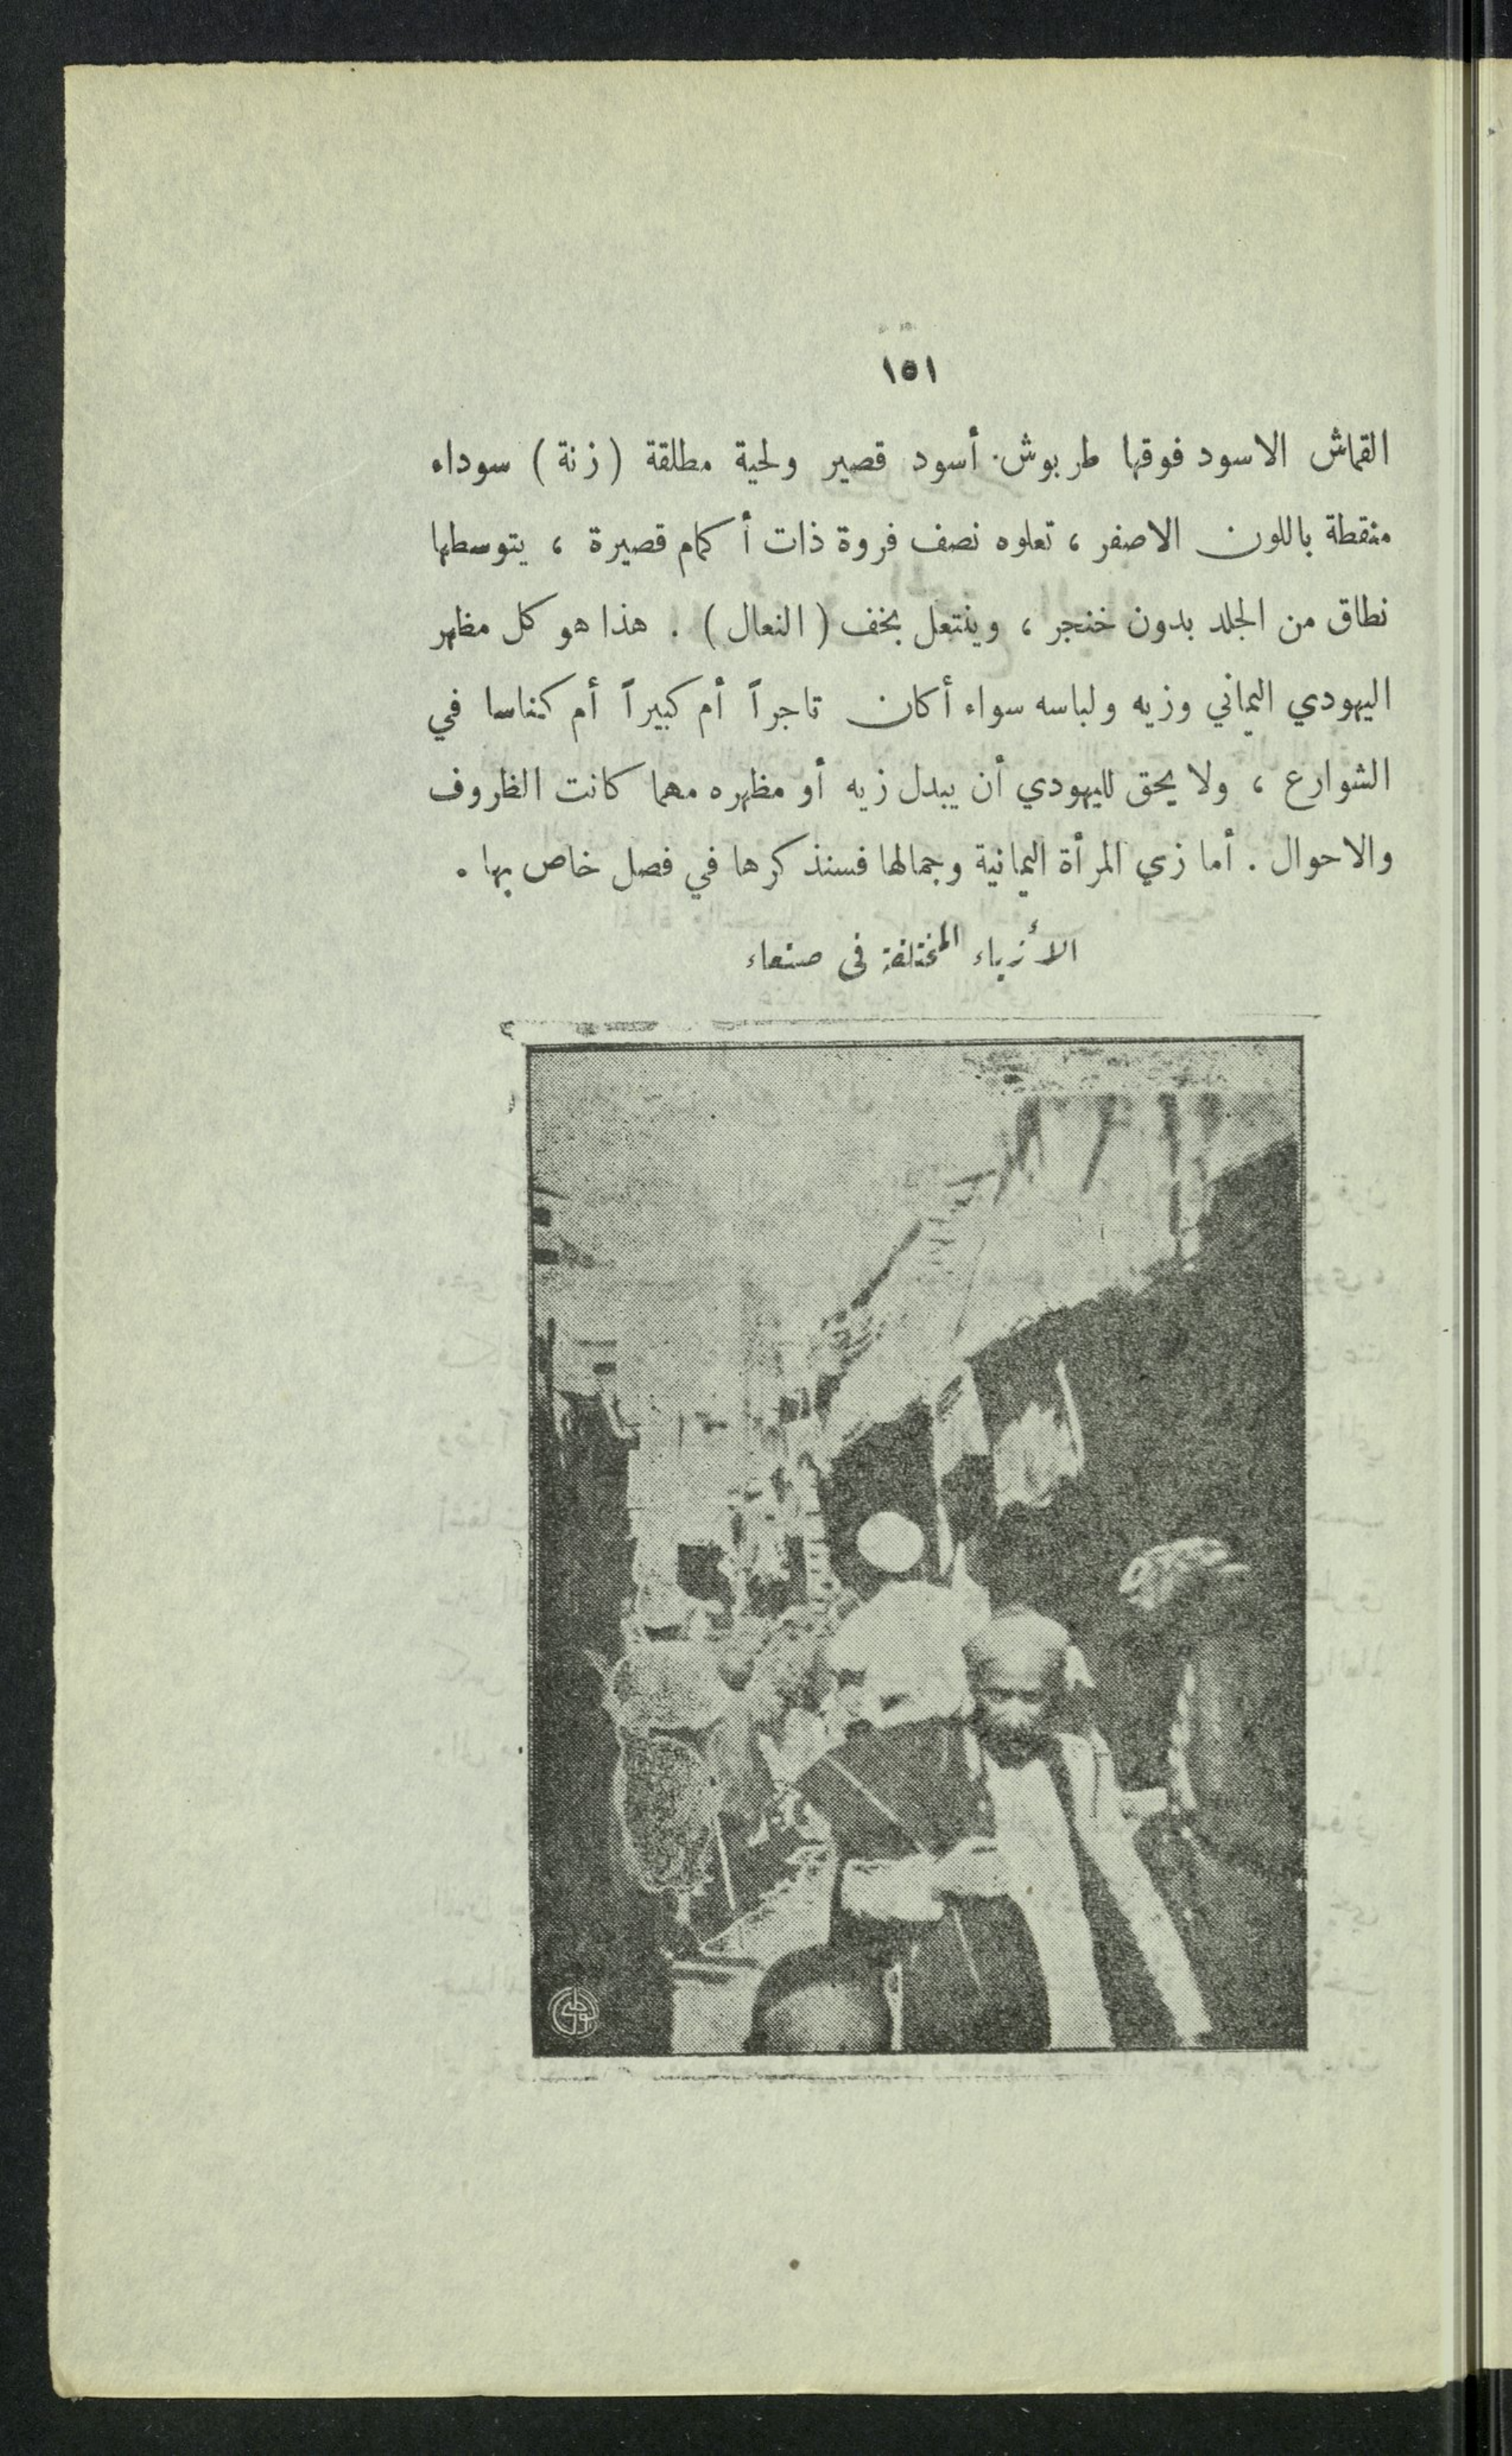 ١٥١
القماش الاسود فوقها طربوش أسود قصير ولحية مطلقة (زنة) سوداء
منقطة باللون الاصفر ، تعلوه نصف فروة ذات أكمام قصيرة ، يتوسطها
نطاق من الجلد بدون خنجر ، وينتعل بخف ( النعال ) . هذا هو كل مظهر
اليهودي اليماني وزيه ولباسه سواء أكان تاجراً أم كبيراً أم كناسا في
الشوارع ، ولا يحق لليهودي أن يبدل زيه أو مظهره مهما كانت الظروف
والاحوال . أما زي المرأة اليمانية وجمالها فسنذكرها في فصل خاص بها .
الأزياء المختلفة فى صنعاء